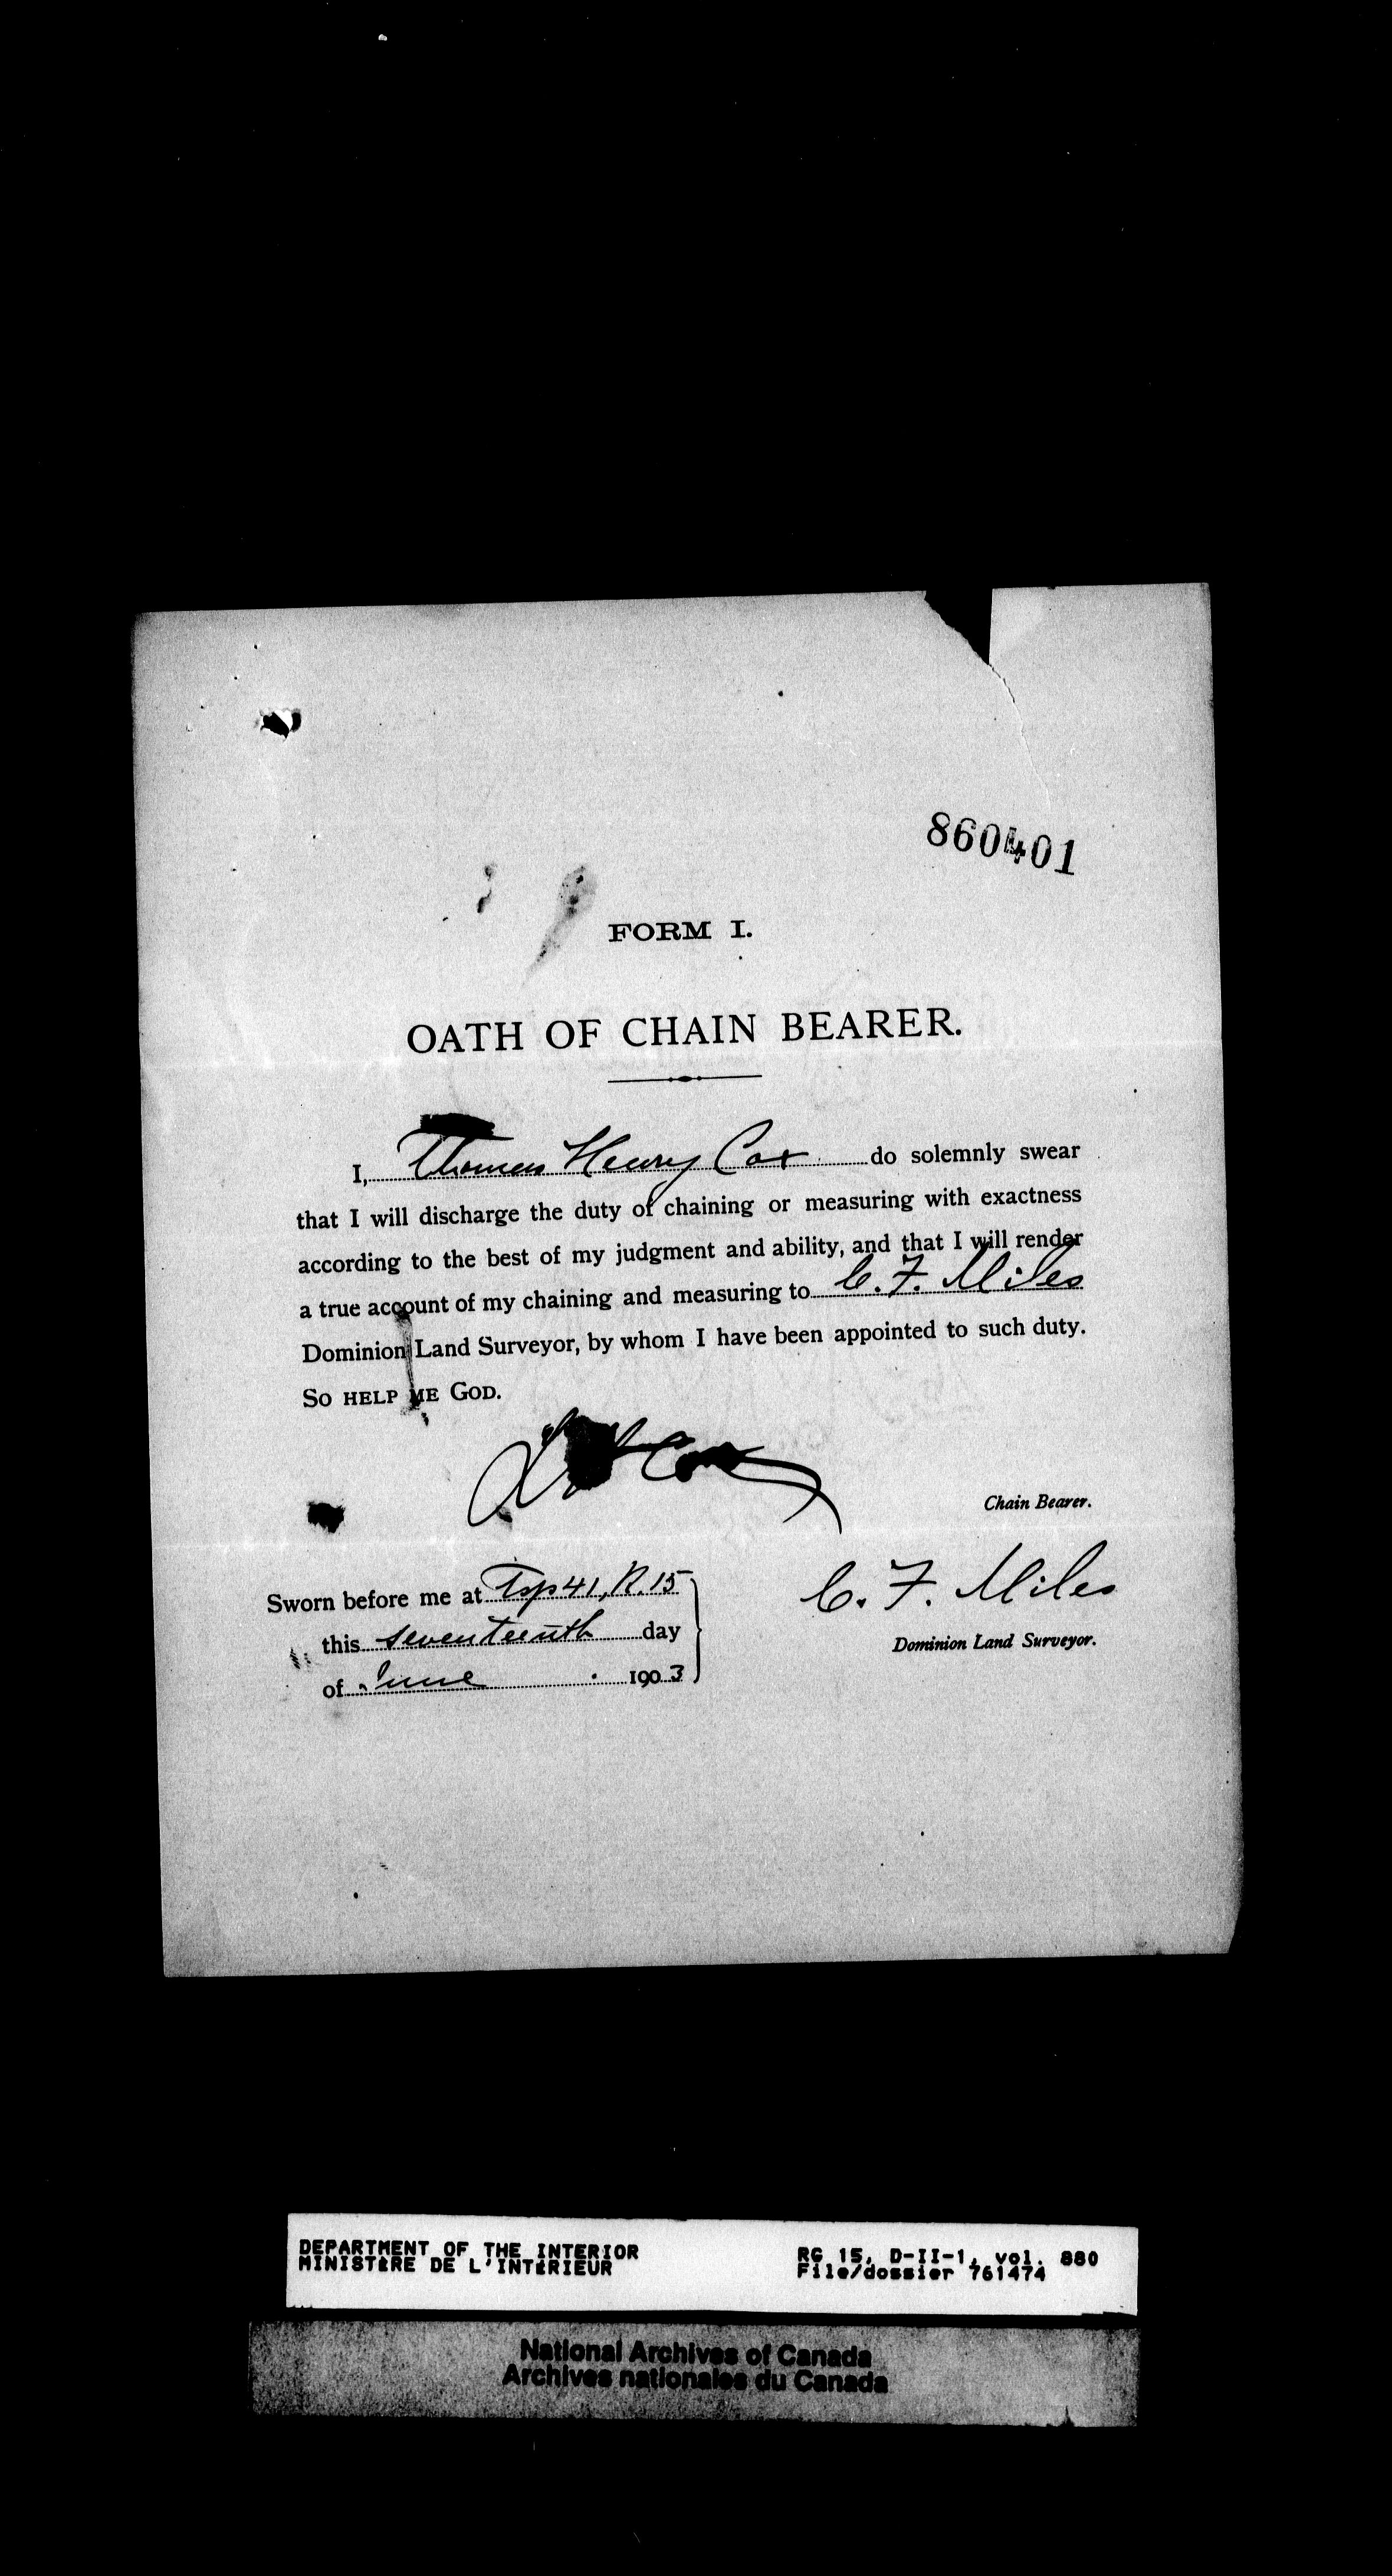 860401
FORM I.
OATH OF CHAIN BEARER.
I, Thomas Henry Cox do solemnly swear
that I will discharge the duty of chaining or measuring with exactness
according to the best of my judgment and ability, and that I will render
a true account of my chaining and measuring to C. F. Miles
Dominion Land Surveyor, by whom I have been appointed to such duty.
So HELP ME GOD.
Cox
Chain Bearer.
Sworn before me at Tsp 41, R. 15
this seventeenth day
of June 1903
C. F. Miles
Dominion Land Surveyor.
DEPARTMENT OF THE INTERIOR
MINISTÈRE DE L'INTÉRIEUR
RG 15, D-II-1, vol. 880
File/dossier 761474
National Archives of Canada
Archives nationales du Canada